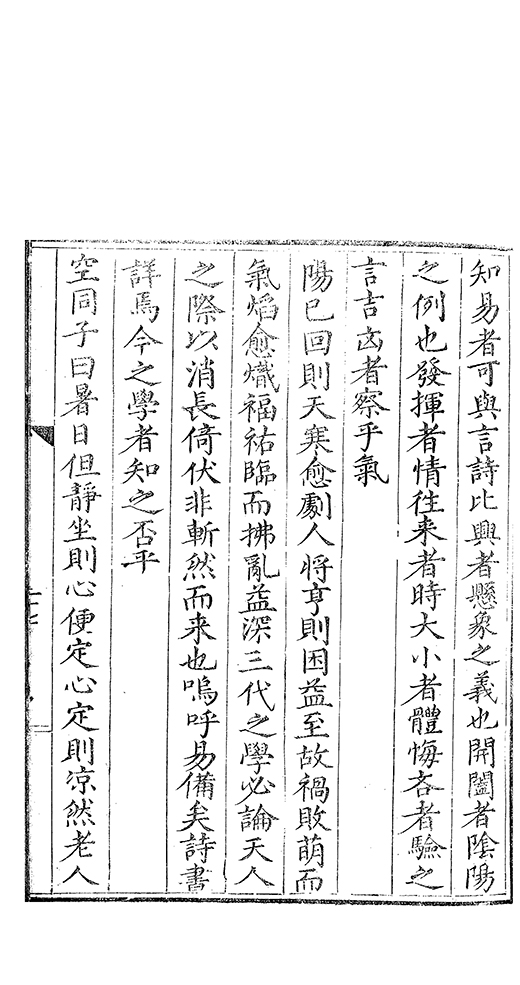 知易者可與言詩比興者懸象之義也開闔者陰陽
之例也發揮者情往来者時大小者體悔吝者驗之
言吉凶者察乎氣
陽已回則天寒愈劇人將亨則困益至故禍敗萌而
氣焰愈熾福祐臨而拂亂益深三代之學必論天人
之際以消長倚伏非斬然而来也嗚呼易備矣詩書
詳焉今之學者知之否乎
空同子曰暑日但靜坐則心便定心定則涼然老人